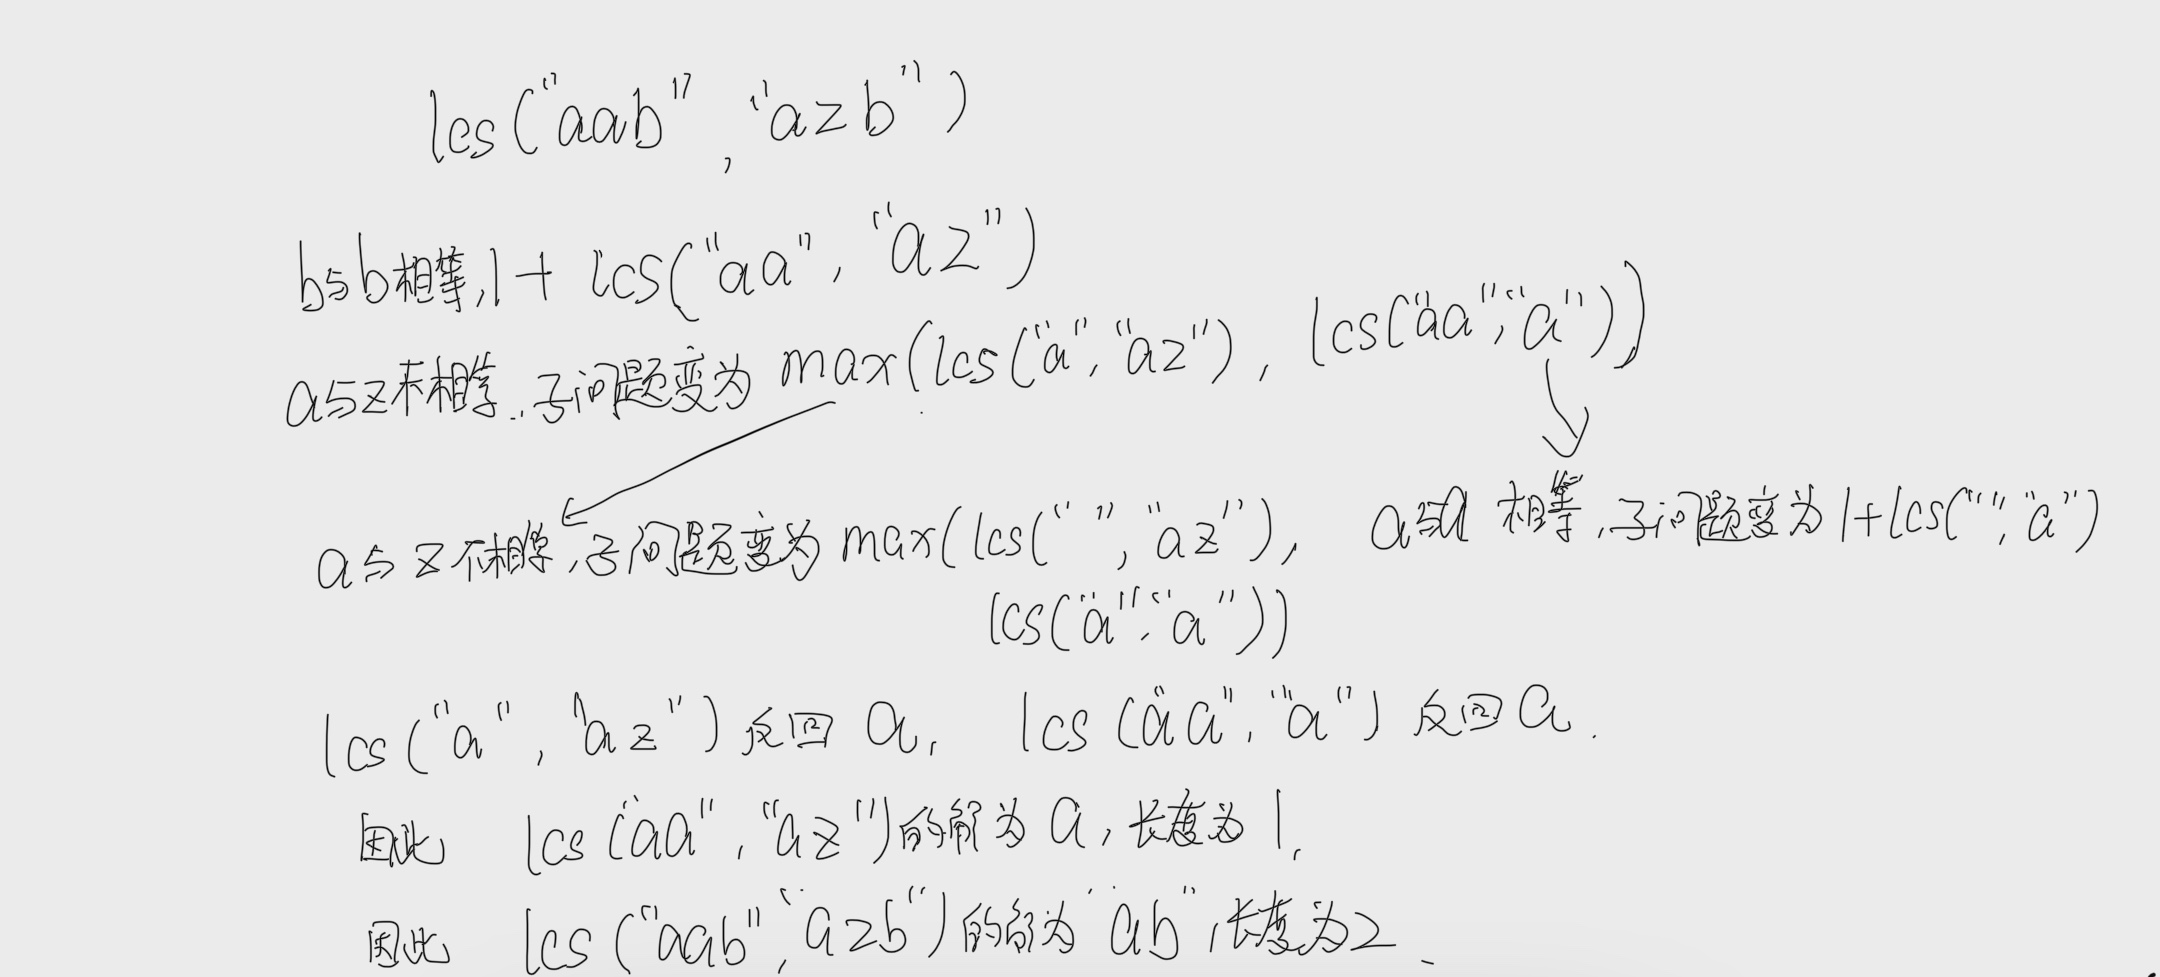 lcs("aab", "azb")
b与b相等,1+ lcs("aa", "az")
a与z不相等,子问题变为 max(lcs("a","az"), lcs("aa","a"))
a与z不相等,子问题变为max(lcs("","az"),
lcs("a","a"))
a与a 相等,子问题变为1+lcs("","a")
lcs("a", "az")反回a, lcs("aa","a")反回a.
因此 lcs("aa","az")的解为a,长度为1.
因此 lcs("aab","azb")的解为"ab",长度为2.